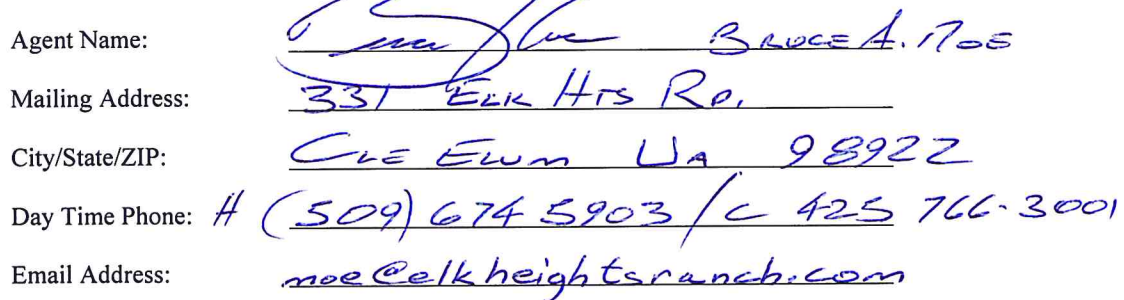 Agent Name: Bruce A. Moe
Mailing Address: 331 Elk Hts Rd.
City/State/ZIP: Cle Elum Wa 98922
Day Time Phone: H (509) 674 5903 / c 425 766-3001
Email Address: moe@elkheightsranch.com